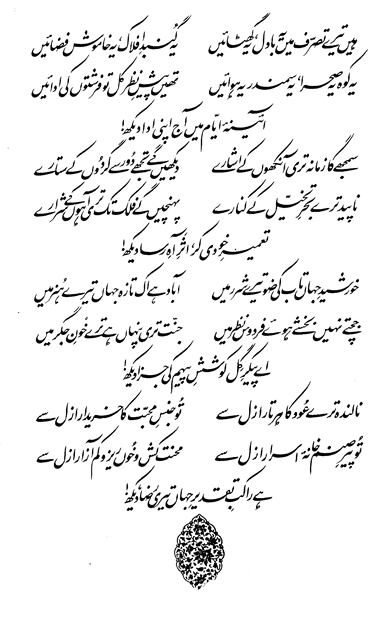 ہیں تیرے تصرّف میں یہ بادل، یہ گھٹائیں یہ گنبدِ افلاک، یہ خاموش فضائیں
یہ کوہ یہ صحرا، یہ سمندر یہ ہوائیں تھیں پیشِ نظر کل تو فرشتوں کی ادائیں
آئینۂ ایّام میں آج اپنی ادا دیکھ!
سمجھے گا زمانہ تری آنکھوں کے اشارے دیکھیں گے تجھے دُور سے گردُوں کے ستارے
ناپید ترے بحرِ تخیّل کے کنارے پہنچیں گے فلک تک تری آہوں کے شرارے
تعمیرِ خودی کر، اثرِ آہِ رسا دیکھ!
خورشیدِ جہاں تاب کی ضو تیرے شرر میں آباد ہے اک تازہ جہاں تیرے ہُنر میں
جچتے نہیں بخشے ہوئے فردوس نظر میں جنّت تری پنہاں ہے ترے خُونِ جگر میں
اے پیکرِ گِل کوششِ پیہم کی جزا دیکھ!
نالندہ ترے عُود کا ہر تار ازل سے تُو جنسِ محبّت کا خریدار ازل سے
تُو پیرِ صنم خانۂ اسرار ازل سے محنت کش و خُوں ریز و کم آزار ازل سے
ہے راکبِ تقدیرِ جہاں تیری رضا، دیکھ!